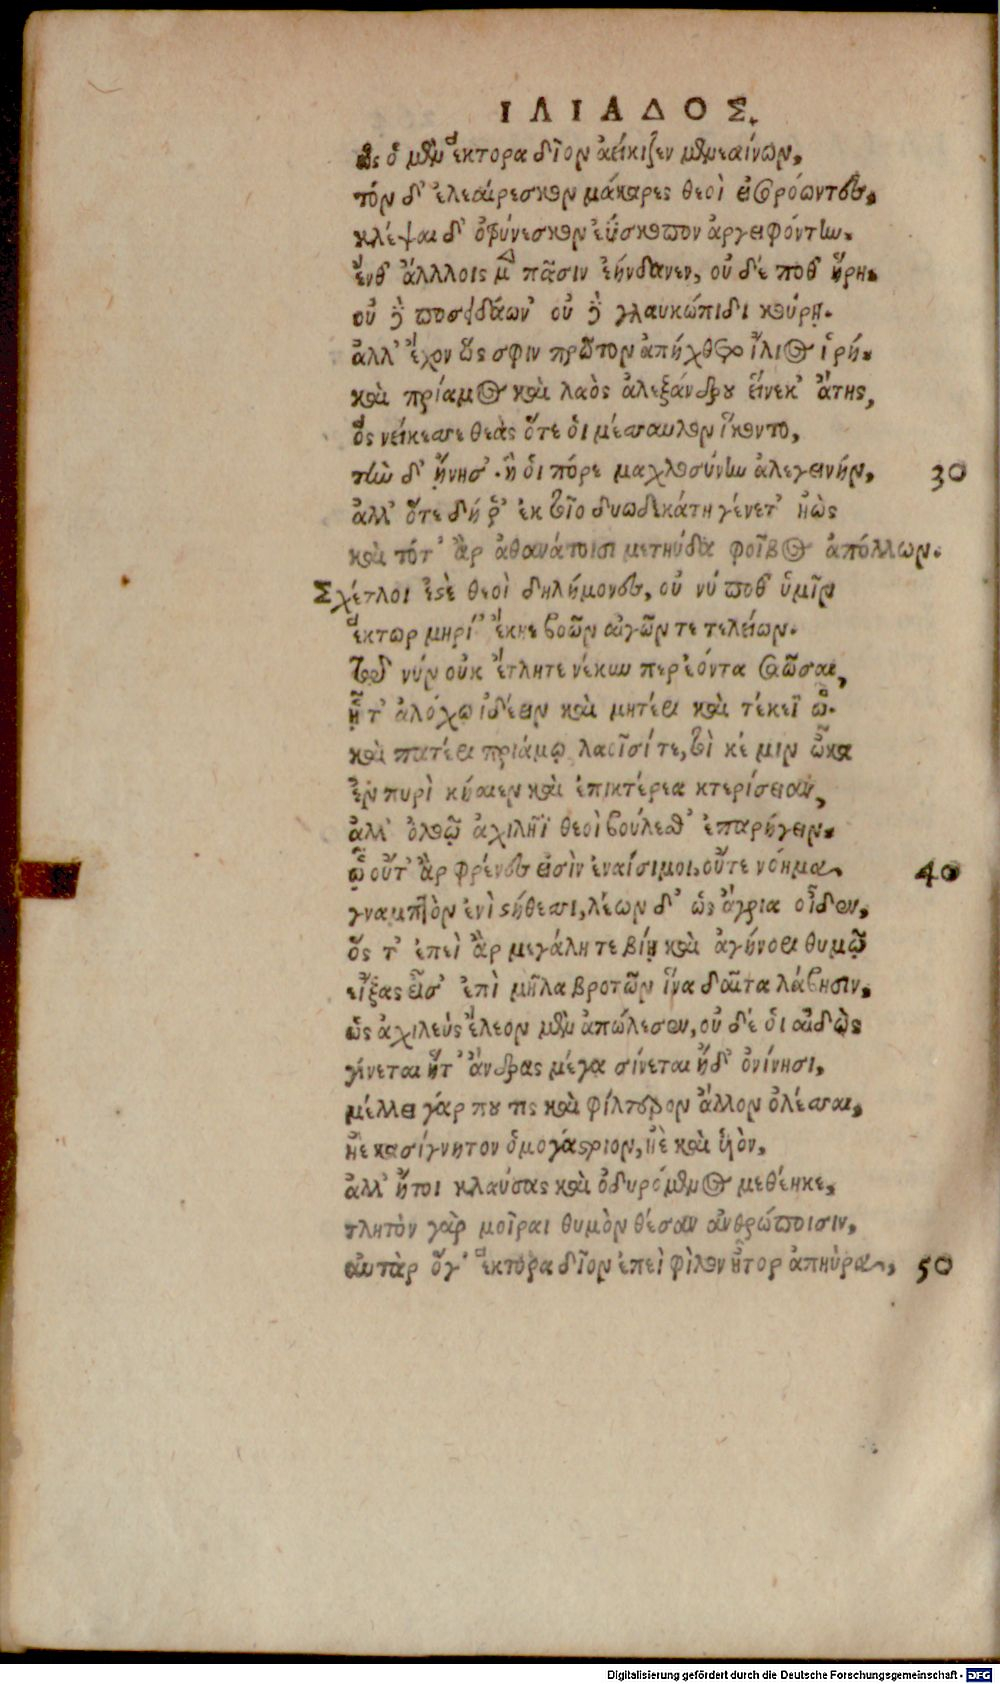 ΙΛΙΑΔΟΣ.
ὣς ὁ μὲν ἕκτορα δῖον ἀείκιζεν μενεαίνων,
τόν δ' ἐλεαίρεσκον μάκαρες θεοὶ εἰσορόωντες,
κλέψαι δ' ὀτρύνεσκον ἐΰσκοπον ἀργειφόντην.
ἔνθ' ἄλλλοις μὲν πᾶσιν ἑήνδανεν, οὐ δέ ποθ' ἥρη.
οὐ δὲ ποσειδάων' οὐ δὲ γλαυκώπιδι κούρῃ.
ἀλλ' ἔχον ὥς σφιν πρῶτον ἀπήχθετο ἴλιος ἱρή.
καὶ πρίαμος καὶ λαὸς ἀλεξάνδρου εἵνεκ' ἄτης,
ὃς νείκεσσε θεὰς ὅτε ὁι μέσσαυλον ἵκοντο,
τὴν δ' ᾔνησ'. ἥ ὁι πόρε μαχλοσύνην ἀλεγεινήν, 30
ἀλλ' ὅτε δή ῥ' ἐκ τοῖο δυωδεκάτη γένετ' ἠὼς
καὶ τότ' ἂρ ἀθανάτοισι μετηύδα φοῖβος ἀπόλλων.
Σχέτλοι ἐστὲ θεοὶ δηλήμονες, οὐ νύ ποθ' ὑμῖν
ἕκτωρ μηρί' ἔκηε βοῶν αἰγῶν τε τελείων.
τὸν νῦν οὐκ ἔτλητε νέκυν περ ἐόντα σαῶσαι,
ᾗ τ' ἀλόχῳ ἰδέειν καὶ μητέρι καὶ τέκεϊ ᾧ.
καὶ πατέρι πριάμῳ λαοῖσί τε, τοὶ κέ μιν ὦκα
ἐν πυρὶ κήαιεν καὶ ἐπικτέρεα κτερίσειαν,
ἀλλ' ὀλοῷ ἀχιλῆϊ θεοὶ βούλεσθ' ἐπαρήγειν.
ᾧ οὔτ' ἂρ φρένες εἰσὶν ἐναίσιμοι, οὔτε νόημα 40
γναμπτὸν ἐνὶ στήθεσσι, λέων δ' ὡς ἄγρια οἶδεν,
ὅς τ' ἐπεὶ ἂρ μεγάλη τε βίῃ καὶ ἀγήνορι θυμῷ
εἴξας εἶσ' ἐπὶ μῆλα βροτῶν ἵνα δαῖτα λάβησιν.
ὣς ἀχιλεὺς ἔλεον μὲν ἀπώλεσεν, οὐ δέ ὁι αἰδὼς
γίνεται ἥτ' ἄνδρας μέγα σίνεται ἠδ' ὀνίνησι,
μέλλει γάρ που τις καὶ φίλτερον ἄλλον ὀλέσσαι,
ἠὲ κασίγνητον ὁμογάστριον, ἠὲ καὶ υἱὸν,
ἀλλ' ἤτοι κλαύσας καὶ ὀδυρόμενος μεθέηκε,
τλητὸν γὰρ μοῖραι θυμὸν θέσαν ἀνθρώποισιν,
αὐτὰρ ὅγ' ἕκτορα δῖον ἐπεὶ φίλον ἦτορ ἀπηύρα, 50
Digitalisierung gefördert durch die Deutsche Forschungsgemeinschaft - DFG